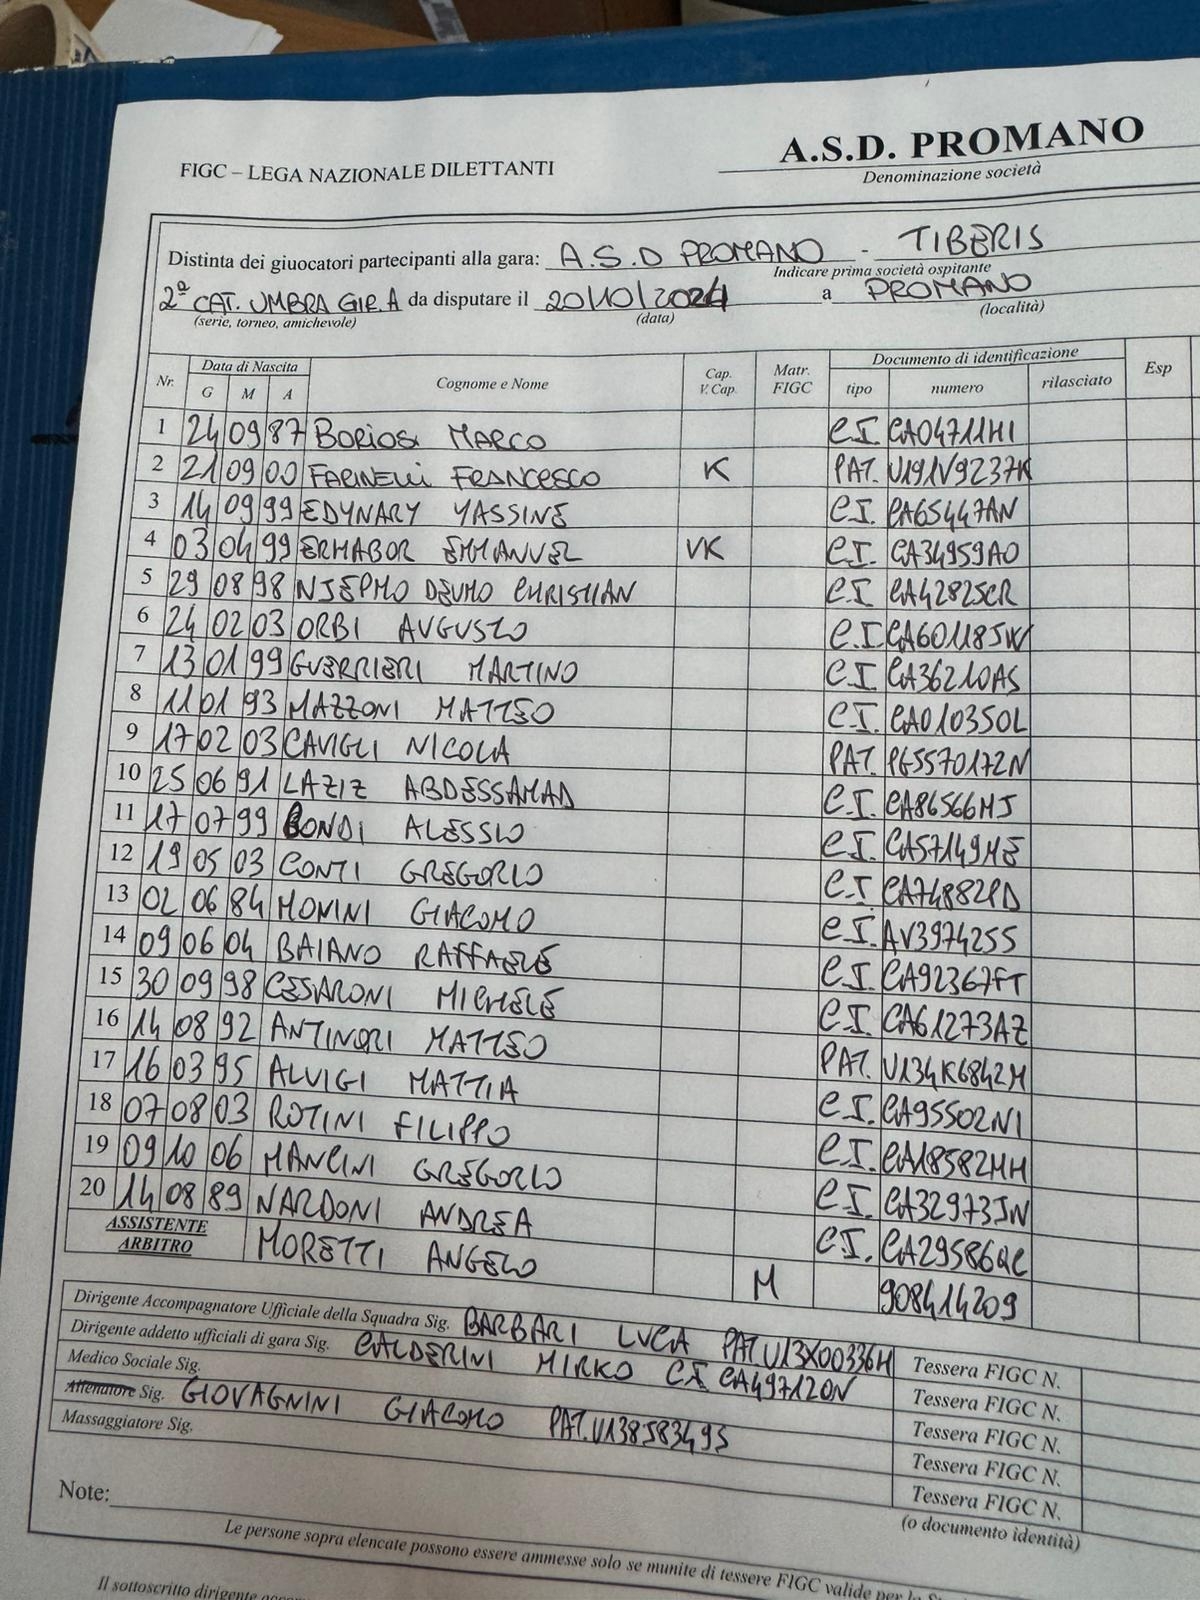 A.S.D. PROMANO
FIGC – LEGA NAZIONALE DILETTANTI
Denominazione società
Distinta dei giuocatori partecipanti alla gara: A.S.D PROMANO - TIBERIS
Indicare prima società ospitante
2ª CAT. UMBRA GIR.A da disputare il 20/10/2024 a PROMANO
(serie, torneo, amichevole) (data) (località)
Nr. Data di Nascita Cognome e Nome Cap. V. Cap. Matr. FIGC Documento di identificazione Esp
G M A tipo numero rilasciato
1 24 09 87 BORIOSI MARCO C.I. CA04711HI
2 21 09 00 FARINELLI FRANCESCO K PAT. U191V9237K
3 14 09 99 EDYNARY YASSINE C.I. CA65447AN
4 03 04 99 ERHABOR EMMANUEL VK C.I. CA34959AO
5 29 08 98 NJEPMO DEUMO CHRISTIAN C.I. CA42825CR
6 24 02 03 ORBI AUGUSTO C.I. CA60118JW
7 13 01 99 GUERRIERI MARTINO C.I. CA36210AS
8 11 01 93 MAZZONI MATTEO C.I. CA01035OL
9 17 02 03 CAVIGLI NICOLA PAT. PG5570172N
10 25 06 91 LAZIZ ABDESSAMAD C.I. CA86566MJ
11 17 07 99 BONDI ALESSIO C.I. CA57149ME
12 19 05 03 CONTI GREGORIO C.I. CA74882PD
13 02 06 84 MONINI GIACOMO C.I. AV3974255
14 09 06 04 BAIANO RAFFAELE C.I. CA92367FT
15 30 09 98 CESARONI MICHELE C.I. CA61273AZ
16 14 08 92 ANTINORI MATTEO PAT. U134K6842M
17 16 03 95 ALVIGI MATTIA C.I. CA95502NI
18 07 08 03 ROTINI FILIPPO C.I. CA18582MH
19 09 10 06 MANCINI GREGORIO C.I. CA32973JN
20 14 08 89 NARDONI ANDREA C.I. CA29586QC
ASSISTENTE ARBITRO MORETTI ANGELO M 908414209
Dirigente Accompagnatore Ufficiale della Squadra Sig. BARBARI LUCA PAT. U13X00336H Tessera FIGC N.
Dirigente addetto ufficiali di gara Sig. CALDERINI MIRKO CI CA49712ON Tessera FIGC N.
Medico Sociale Sig. Tessera FIGC N.
Allenatore Sig. GIOVAGNINI GIACOMO PAT. U13858349S Tessera FIGC N.
Massaggiatore Sig. Tessera FIGC N.
(o documento identità)
Note:
Le persone sopra elencate possono essere ammesse solo se munite di tessere FIGC valide per la
Il sottoscritto dirigente